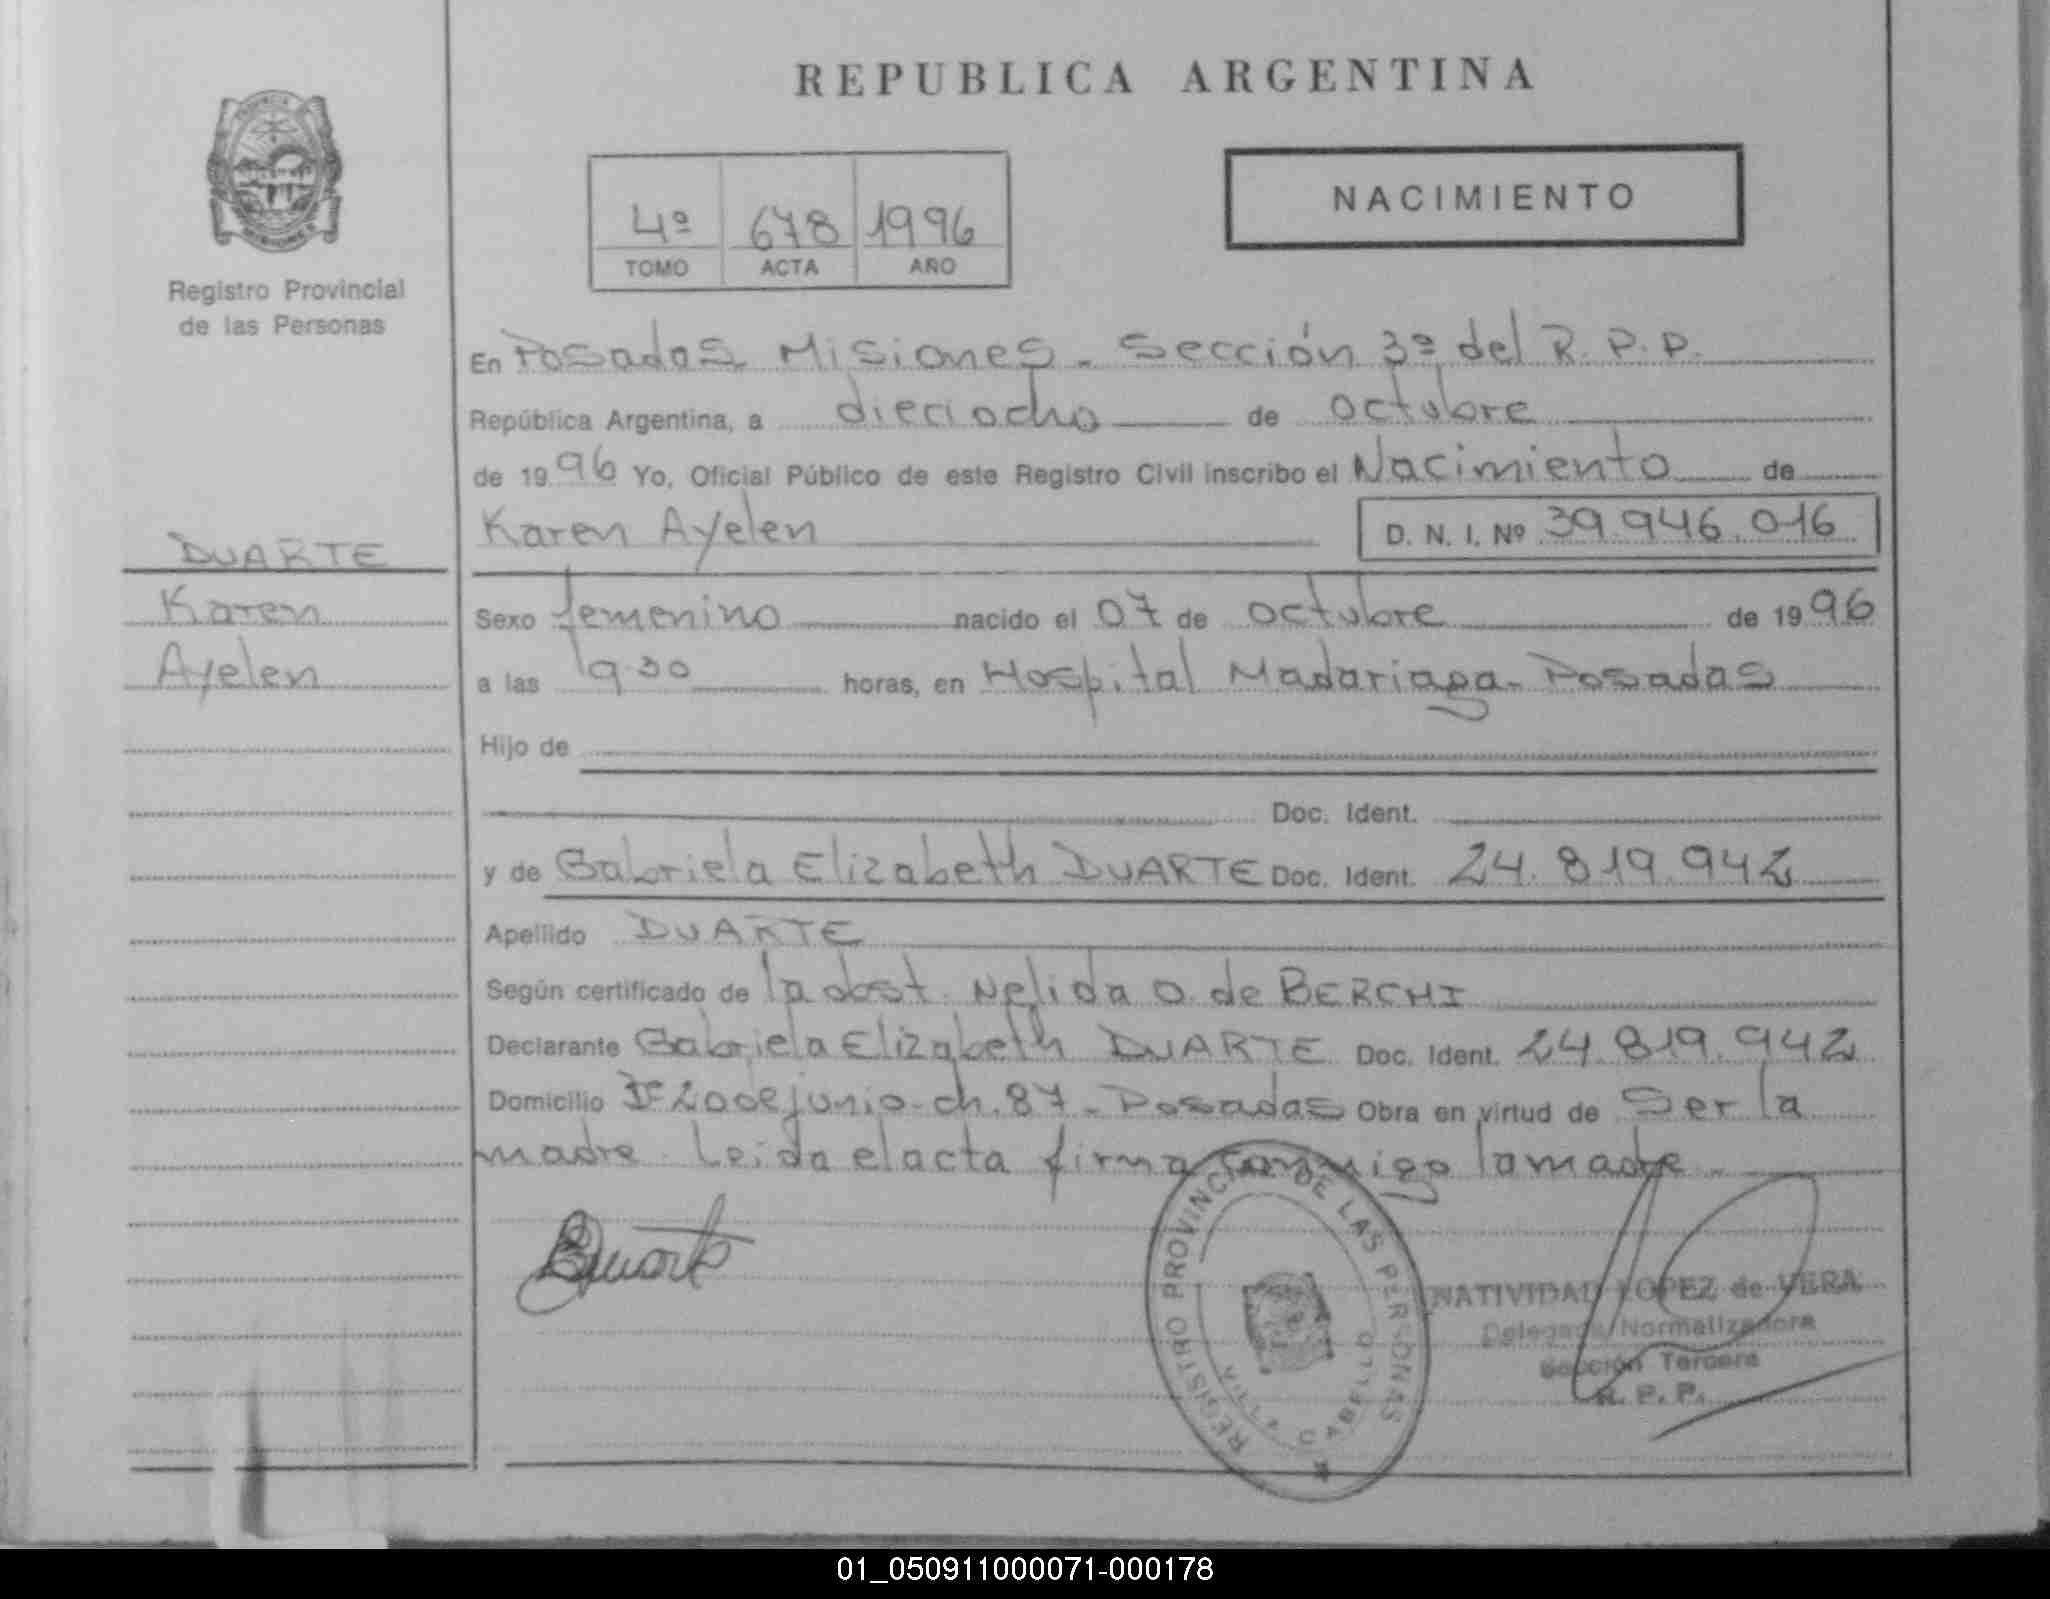 REPUBLICA ARGENTINA
NACIMIENTO
4º 678 1996
TOMO ACTA AÑO
MISIONES
Registro Provincial
de las Personas
En Posadas Misiones - Sección 3º del R. P. P.
República Argentina, a dieciocho de octubre
de 1996 Yo, Oficial Público de este Registro Civil inscribo el Nacimiento de
Karen Ayelen D. N. I. Nº 39.946.016
DUARTE
Karen
Ayelen
Sexo femenino nacido el 07 de octubre de 1996
a las 19.30 horas, en Hospital Madariaga - Posadas
Hijo de
Doc. Ident.
y de Gabriela Elizabeth DUARTE Doc. Ident. 24.819.942
Apellido DUARTE
Según certificado de la obst. Nelida O. de BERCHI
Declarante Gabriela Elizabeth DUARTE Doc. Ident. 24.819.942
Domicilio 20 de junio - ch. 87 - Posadas Obra en virtud de Ser la
madre. Leida el acta firma conmigo la madre
Duarte
REGISTRO PROVINCIAL DE LAS PERSONAS
VILLA CABELLO
NATIVIDAD LOPEZ de VERA
Delegada Normalizadora
Sección Tercera
R. P. P.
01_050911000071-000178